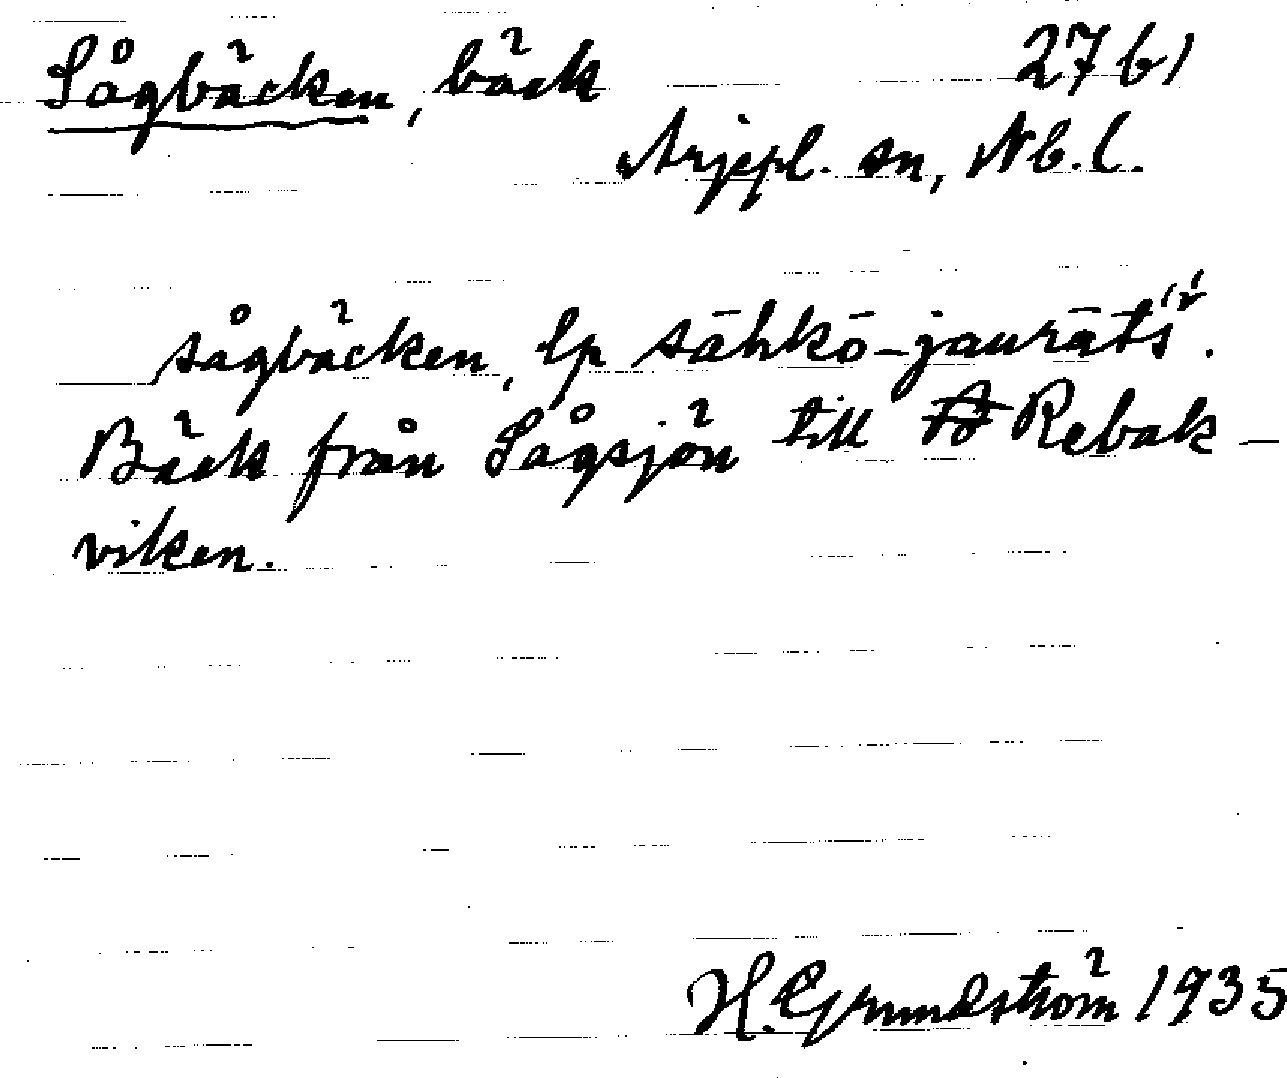 Sågbäcken, bäck 27 b 1
Arjepl. sn, Nb. l.
sågbäcken, lp sāhkō-jaurātś.
Bäck från Sågsjön till Rebak-
viken.
H. Grundström 1935